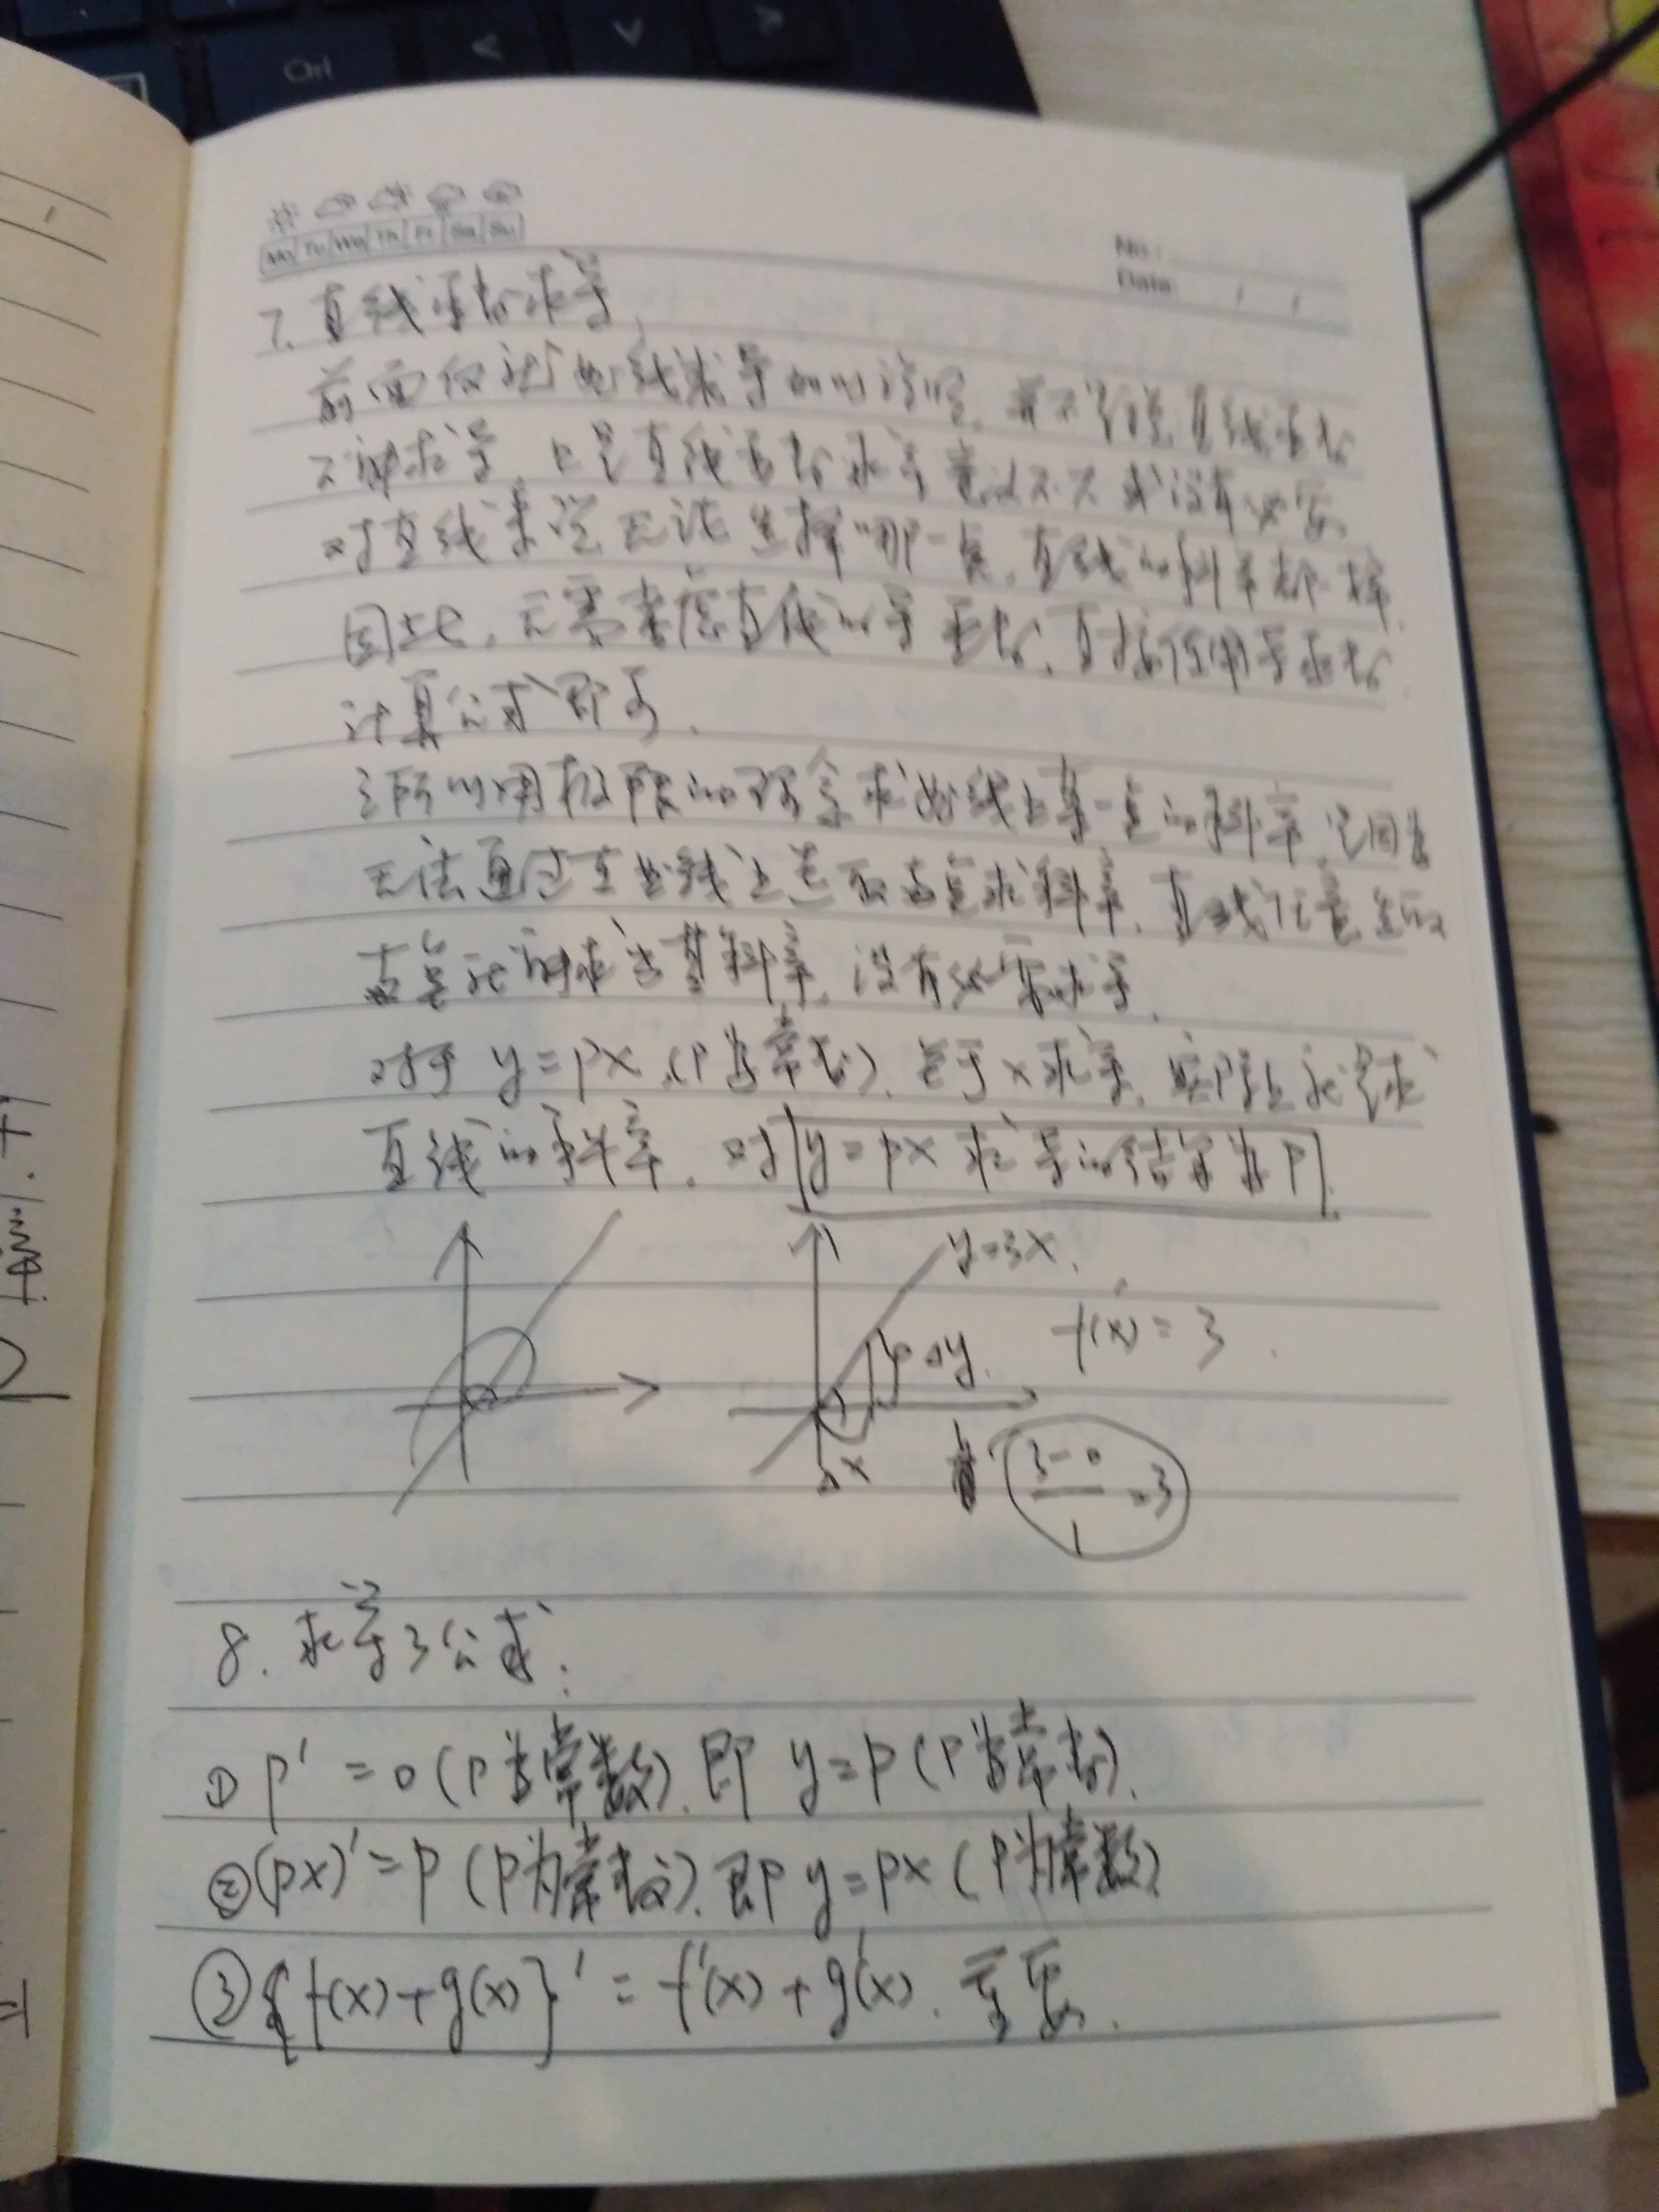 Ctrl
Mo Tu We Th Fr Sa Su
No:
Date:
7. 直线函数求导
前面仅就曲线求导加以说明，并不是说直线函数
不能求导，只是直线函数求导意义不大或没有必要
对直线来说无论选择哪一点，直线的斜率都一样
因此，无需考虑直线的导函数，直接使用导函数
计算公式即可.
之所以用极限的概念求曲线上某一点的斜率，是因为
无法通过在曲线上选取两点求斜率，直线任意选取
两点就能求出其斜率，没有必要求导.
对于 y=px,(p为常数), 关于x求导, 实际上就是求
直线的斜率. 对 y=px 求导的结果为P.
y=3x.
f'(x)=3.
Δy.
Δx
3-0
=3
1
8. 求导3公式:
① p'=0(p为常数). 即 y=p (p为常数).
②(px)'=p (p为常数). 即 y=px (p为常数)
③{f(x)+g(x)}'=f'(x)+g'(x). 重要.